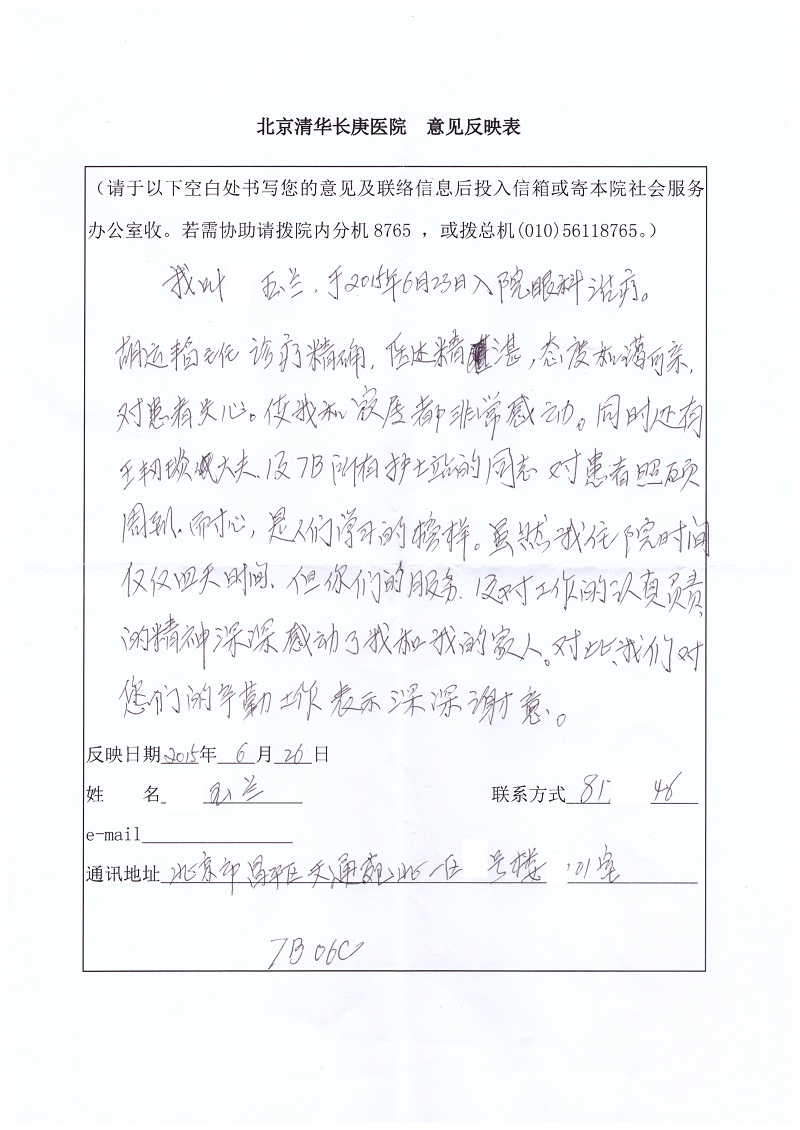 北京清华长庚医院 意见反映表
（请于以下空白处书写您的意见及联络信息后投入信箱或寄本院社会服务
办公室收。若需协助请拨院内分机8765 ，或拨总机(010)56118765。）
我叫 玉兰，于2015年6月23日入院眼科治疗。
胡运韬主任 诊疗精确，医述精湛，态度和谒可亲，
对患者关心。使我和家属都非常感动。同时还有
王 大夫.及7B所有护士站的同志 对患者照顾
周到.而耐心，是人们学习的榜样。虽然我住院时间
仅仅四天时间.但你们的服务.及对工作的认真负责,
的精神深深感动了我和我的家人。对此、我们对
您们的辛勤工作 表示深深谢意。
反映日期2015年 6 月 26 日
姓 名 玉兰 联系方式 81 46
e-mail
通讯地址 北京市昌平区交通 北一区 号楼 01室
7B 06C